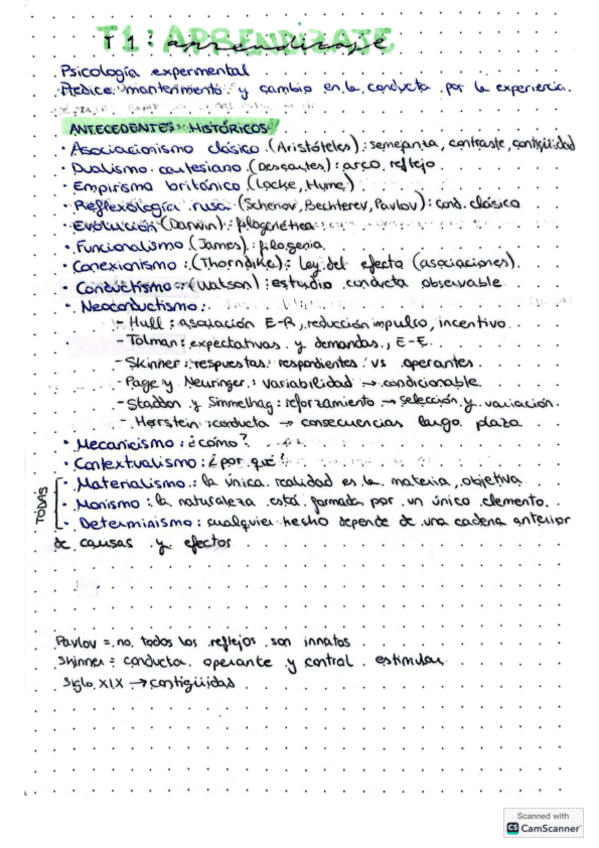 T1: APRENDIZAJE
aprendizaje
Psicología experimental
Predice mantenimiento y cambio en la conducta por la experiencia.
ANTECEDENTES HISTÓRICOS
· Asociacionismo clásico (Aristóteles): semejanza, contraste, contigüidad
· Dualismo cartesiano (Descartes): arco reflejo
· Empirismo británico (Locke, Hume)
· Reflexología rusa (Schenov, Bechterev, Pavlov): cond. clásico
· Evolución (Darwin): filogenética
· Funcionalismo (James): filogenia
· Conexionismo: (Thorndike): Ley del efecto (asociaciones)
· Conductismo: (Watson): estudio conducta observable
· Neoconductismo:
- Hull: asociación E-R, reducción impulso, incentivo
- Tolman: expectativas y demandas, E-E
- Skinner: respuestas respondientes vs operantes
- Page y Neuringer: variabilidad → condicionable
- Staddon y Simmelhag: reforzamiento → selección y variación
- Herstein: conducta → consecuencias largo plazo
· Mecanicismo: ¿cómo?
· Contextualismo: ¿por qué?
TODAS
· Materialismo: la única realidad es la materia, objetiva
· Monismo: la naturaleza está formada por un único elemento
· Determinismo: cualquier hecho depende de una cadena anterior
de causas y efectos
Pavlov = no todos los reflejos son innatos
Skinner = conducta operante y control estimular
Siglo XIX → contigüidad
Scanned with
CS CamScanner